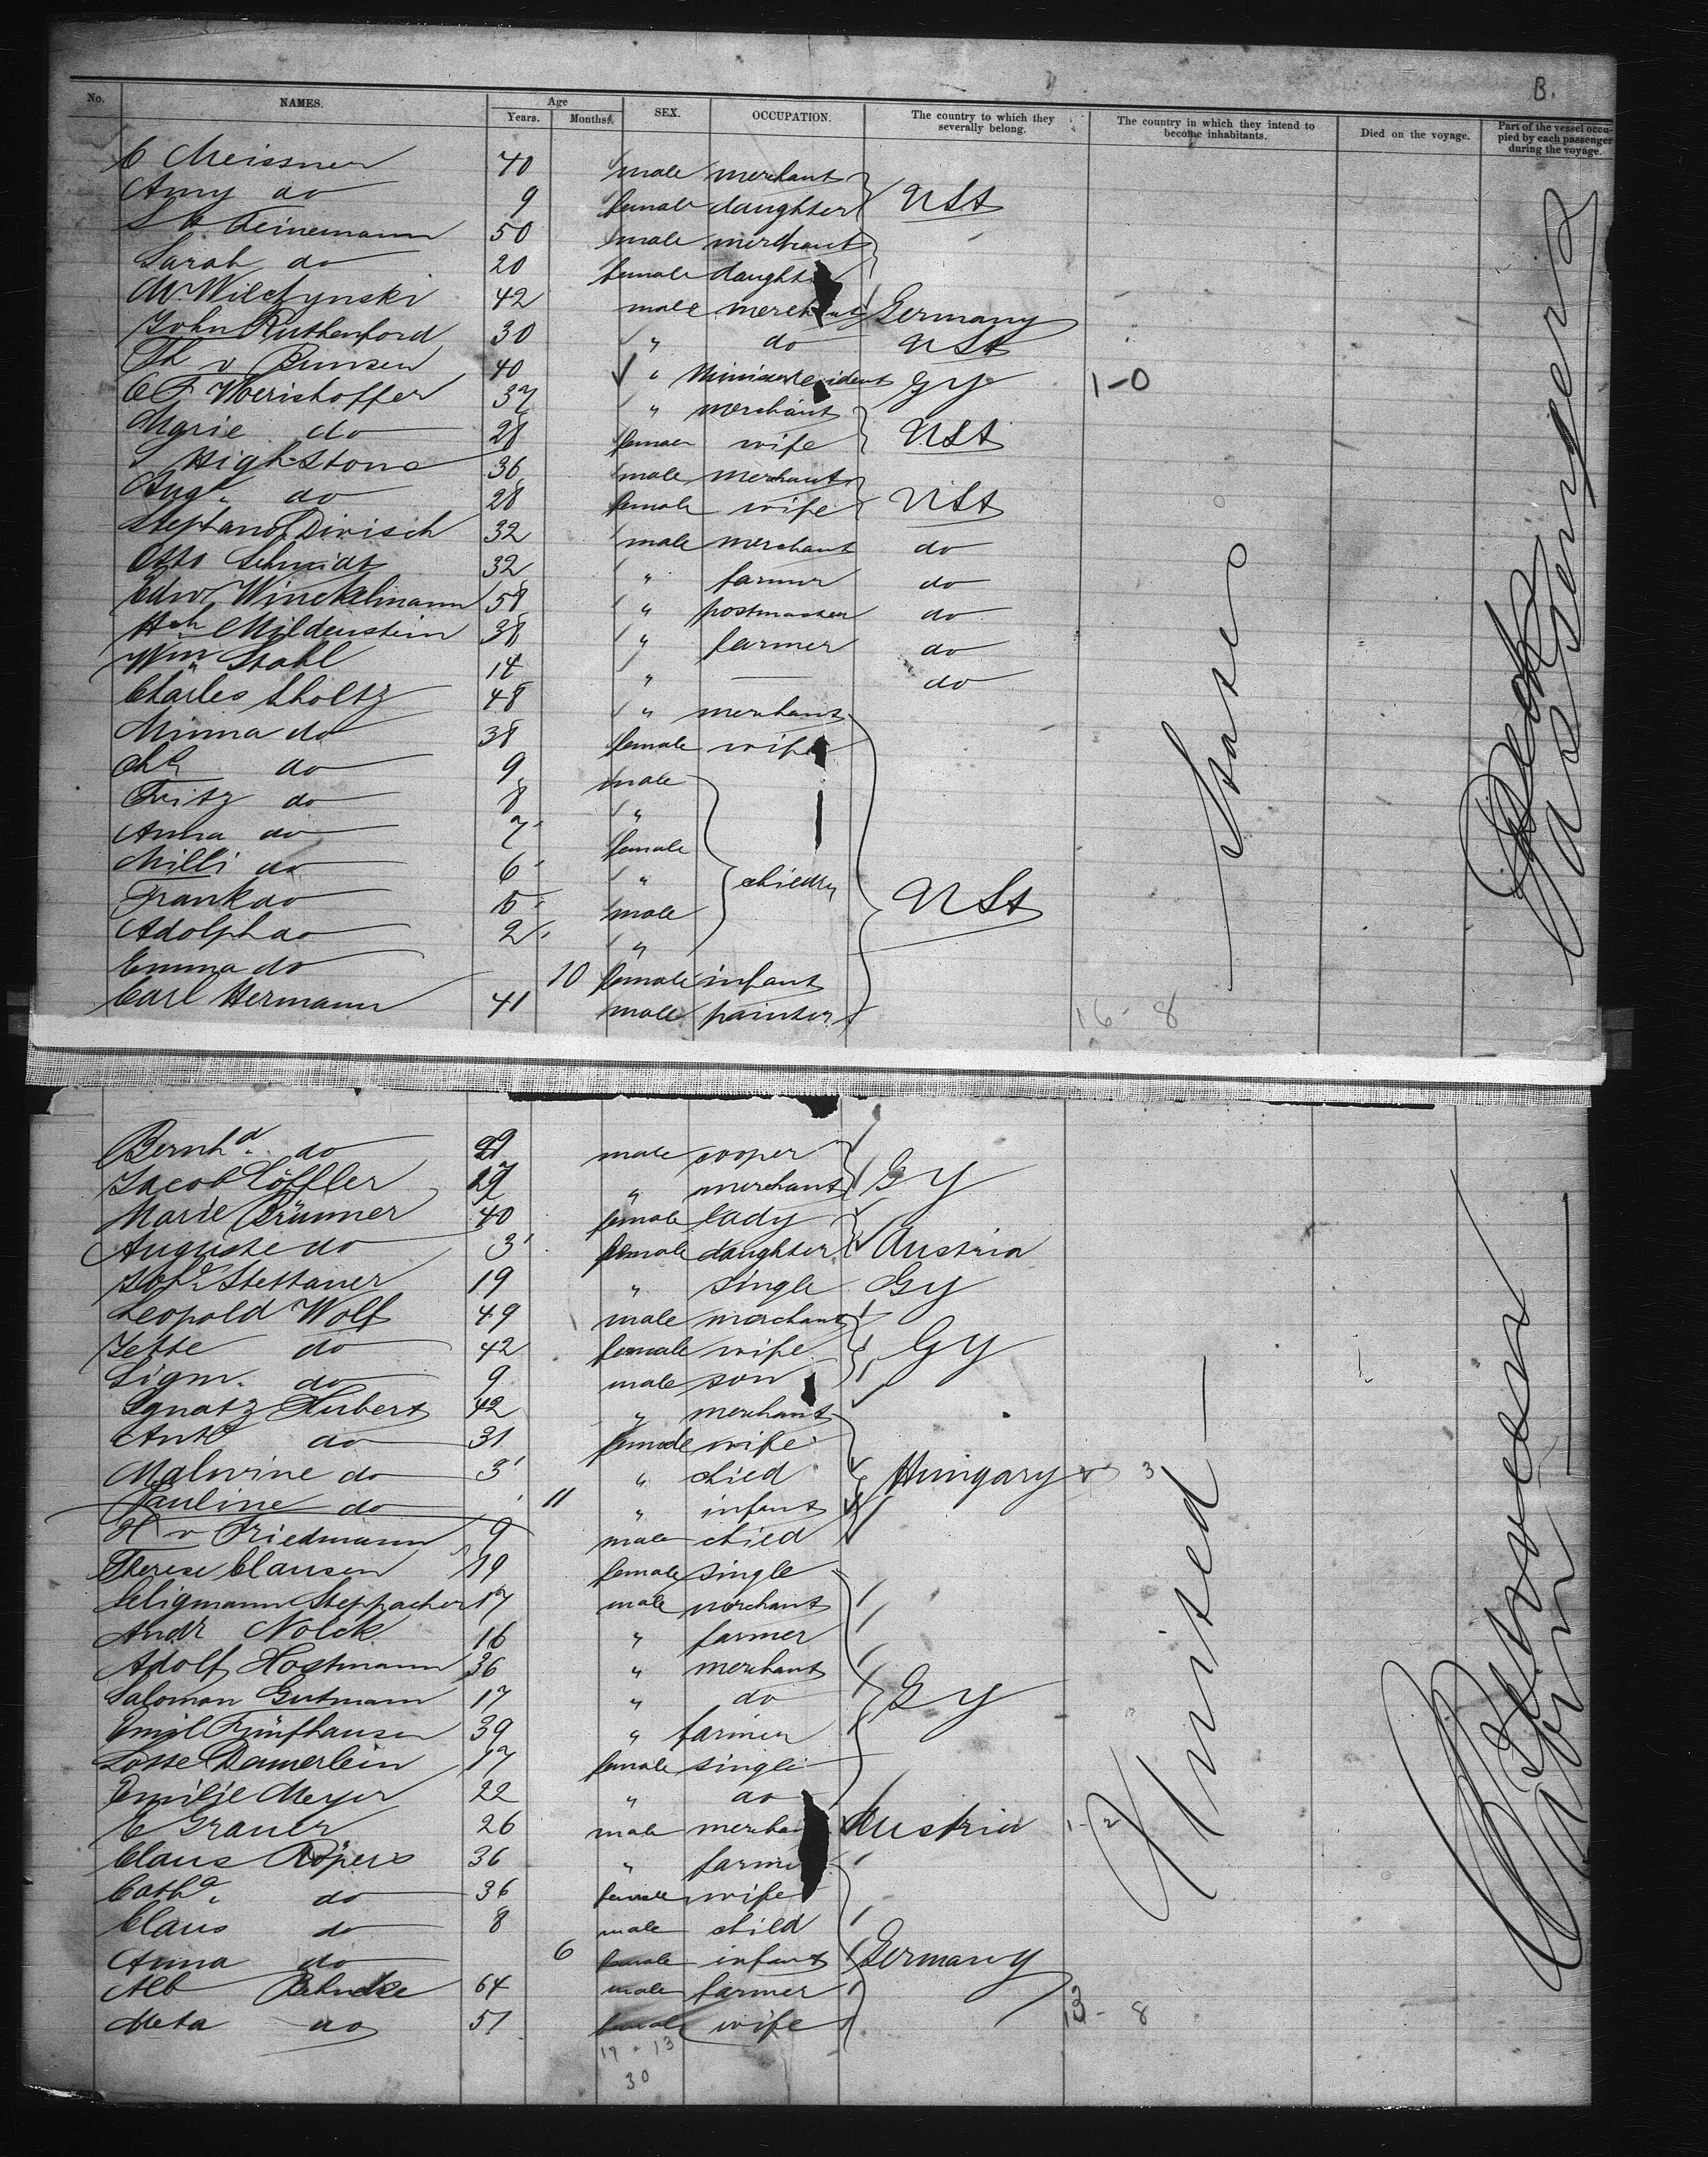 B.
No. NAMES. Age Years. Months. SEX. OCCUPATION. The country to which they severally belong. The country in which they intend to become inhabitants. Died on the voyage. Part of the vessel occupied by each passenger during the voyage.
C Meissner 40 male merchant
Amy do 9 female daughter USt
S H Heinemann 50 male merchant
Sarah do 20 female daught
M. Wilczynski 42 male merchant Germany
John Rutherford 30 " do USt
Th v Bunsen 40 " Ministerresident Gy 1-0
C F Woerishoffer 37 " merchant
Marie do 28 female wife USt
S HighStone 36 male merchant
Augta do 28 female wife USt
Stephano Divisch 32 male merchant do
Otto Schmidt 32 " farmer do
Edw Winckelmann 58 " postmaster do
Hch Mildenstein 38 " farmer do
Wm Stahl 14 " — do
Charles Sholtz 48 " merchant
Minna do 38 female wife
Chs do 9 male
Fritz do 8 "
Anna do 7 female
Milli do 6 " children USt
Frank do 5 male
Adolph do 2 "
Emma do 10 female infant
Carl Hermann 41 male painter 16-8
Bernhd do 29 male cooper
Jacob Löffler 27 " merchant Gy
Marie Brünner 40 female lady
Auguste do 3 female daughter Austria
Sofe Stettauer 19 " single Gy
Leopold Wolf 49 male merchant
Jette do 42 female wife Gy
Sigm. do 9 male son
Ignatz Hubert 42 " merchant
Anta do 31 female wife
Malwine do 3 " child Hungary 3
Pauline do 11 " infant
H v Friedmann 9 male child
Therese Clausen 19 female single
Seligmann Steppacher 17 male merchant
Andr Nolck 16 " farmer
Adolf Hostmann 36 " merchant
Salomon Gutmann 17 " do Gy
Emil Fünfhausen 39 " farmer
Lotte Damerlein 17 female single
Emilie Meyer 22 " do
C Grauer 26 male merchan Austria 1-2
Claus Röpers 36 " farme
Catha do 36 female wife
Claus do 8 male child
Anna do 6 female infant Germany
Alb Behncke 64 male farmer
Meta do 51 female wife 13-8
17-13
30
United States
Between Deck
Passengers